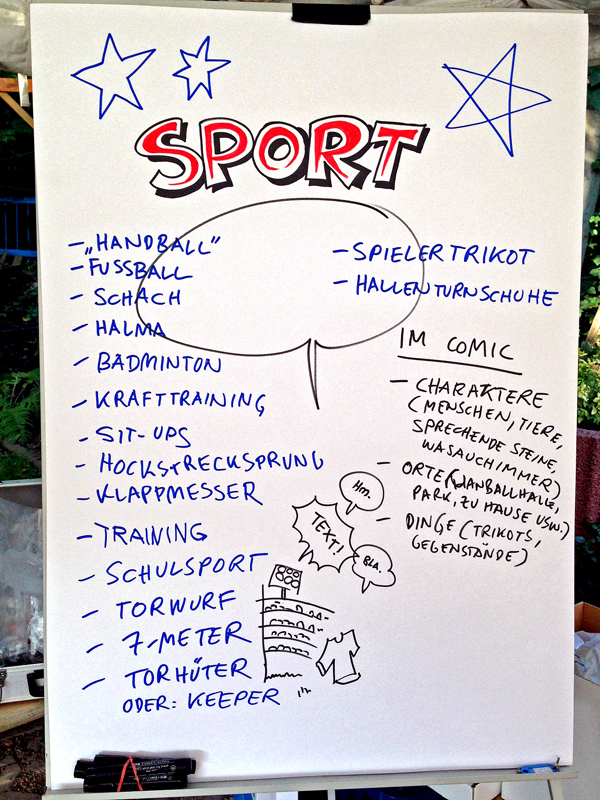 SPORT
- „HANDBALL"
- FUSSBALL
- SCHACH
- HALMA
- BADMINTON
- KRAFTTRAINING
- SIT-UPS
- HOCKSTRECKSPRUNG
- KLAPPMESSER
- TRAINING
- SCHULSPORT
- TORWURF
- 7-METER
- TORHÜTER
ODER: KEEPER
- SPIELERTRIKOT
- HALLENTURNSCHUHE
IM COMIC
- CHARAKTERE
(MENSCHEN, TIERE,
SPRECHENDE STEINE,
WASAUCHIMMER)
- ORTE (HANBALLHALLE,
PARK, ZU HAUSE USW.)
- DINGE (TRIKOTS,
GEGENSTÄNDE)
Hm.
TEXT!
BLA.